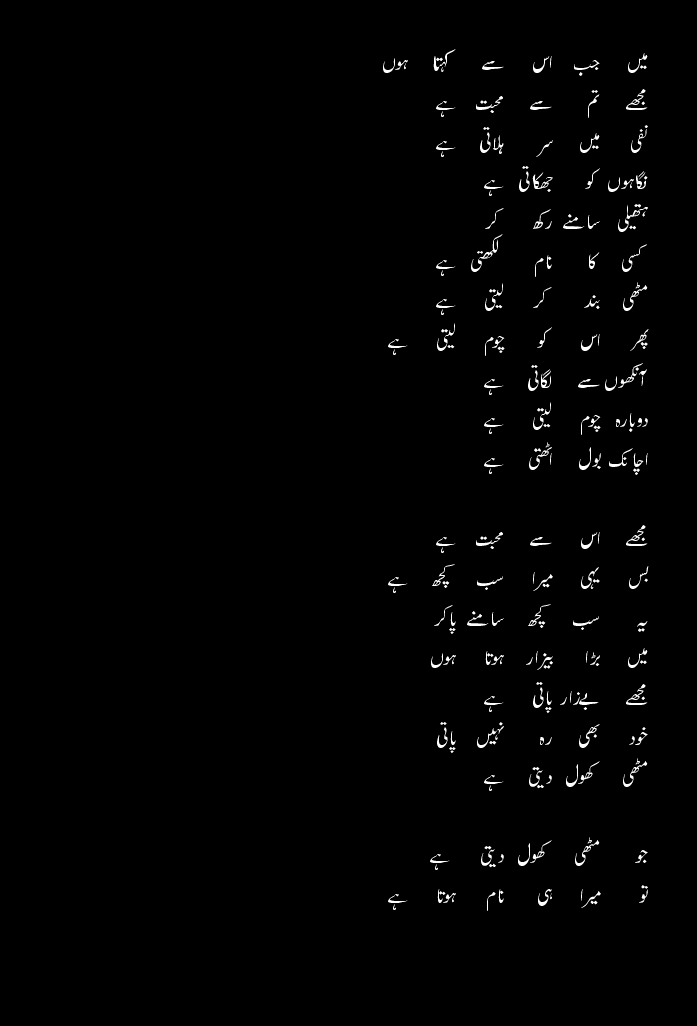 میں جب اس سے کہتا ہوں
مجھے تم سے محبت ہے
نفی میں سر ہلاتی ہے
نگاہوں کو جھکاتی ہے
ہتھیلی سامنے رکھ کر
کسی کا نام لکھتی ہے
مٹھی بند کر لیتی ہے
پھر اس کو چوم لیتی ہے
آنکھوں سے لگاتی ہے
دوبارہ چوم لیتی ہے
اچانک بول اٹھتی ہے
مجھے اس سے محبت ہے
بس یہی میرا سب کچھ ہے
یہ سب کچھ سامنے پاکر
میں بڑا بیزار ہوتا ہوں
مجھے بےزار پاتی ہے
خود بھی رہ نہیں پاتی
مٹھی کھول دیتی ہے
جو مٹھی کھول دیتی ہے
تو میرا ہی نام ہوتا ہے